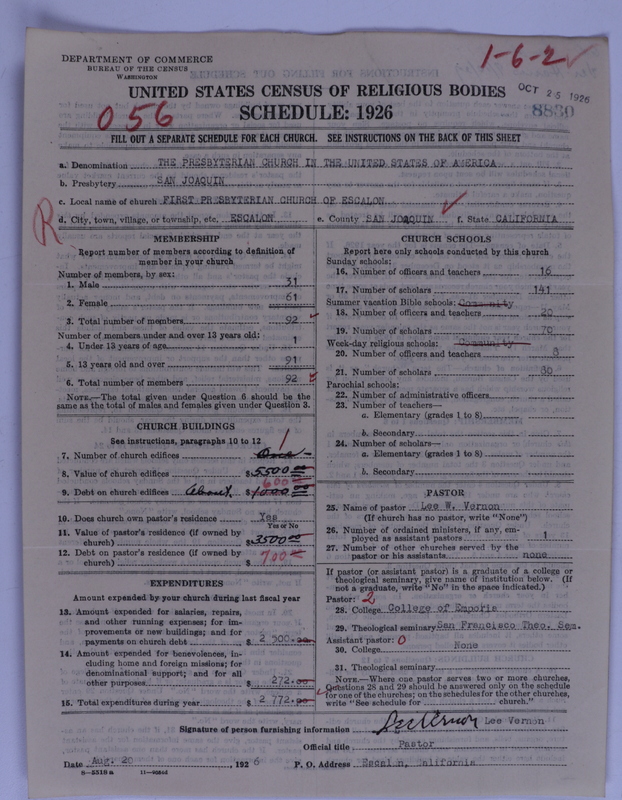 DEPARTMENT OF COMMERCE
BUREAU OF THE CENSUS
WASHINGTON
1-6-2
UNITED STATES CENSUS OF RELIGIOUS BODIES
OCT 25 1926
SCHEDULE: 1926
8830
056
FILL OUT A SEPARATE SCHEDULE FOR EACH CHURCH. SEE INSTRUCTIONS ON THE BACK OF THIS SHEET
a. Denomination THE PRESBYTERIAN CHURCH IN THE UNITED STATES OF AMERICA
b. Presbytery SAN JOAQUIN
c. Local name of church FIRST PRESBYTERIAN CHURCH OF ESCALON
R
d. City, town, village, or township, etc. ESCALON e. County SAN JOAQUIN f. State CALIFORNIA
MEMBERSHIP
Report number of members according to definition of
member in your church
Number of members, by sex:
1. Male 31
2. Female 61
3. Total number of members 92
Number of members under and over 13 years old:
4. Under 13 years of age 1
5. 13 years old and over 91
6. Total number of members 92
NOTE.—The total given under Question 6 should be the
same as the total of males and females given under Question 3.
CHURCH BUILDINGS
See instructions, paragraphs 10 to 12
7. Number of church edifices One 1
8. Value of church edifices $ 5500 00
600
9. Debt on church edifices About $ 1000 00
10. Does church own pastor's residence Yes
Yes or No
11. Value of pastor's residence (if owned by
church) $ 3500
12. Debt on pastor's residence (if owned by
church) $ 700
EXPENDITURES
Amount expended by your church during last fiscal year
13. Amount expended for salaries, repairs,
and other running expenses; for im-
provements or new buildings; and for
payments on church debt $ 2 500.00
14. Amount expended for benevolences, in-
cluding home and foreign missions; for
denominational support; and for all
other purposes $ 272.00
15. Total expenditures during year $ 2 772.00
CHURCH SCHOOLS
Report here only schools conducted by this church
Sunday schools:
16. Number of officers and teachers 16
17. Number of scholars 141
Summer vacation Bible schools: Community
18. Number of officers and teachers 20
19. Number of scholars 70
Week-day religious schools: Community
20. Number of officers and teachers
21. Number of scholars
Parochial schools:
22. Number of administrative officers
23. Number of teachers—
a. Elementary (grades 1 to 8)
b. Secondary
24. Number of scholars—
a. Elementary (grades 1 to 8)
b. Secondary
PASTOR
25. Name of pastor Lee W. Vernon
(If church has no pastor, write "None")
26. Number of ordained ministers, if any, em-
ployed as assistant pastors 1
27. Number of other churches served by the
pastor or his assistants none
If pastor (or assistant pastor) is a graduate of a college or
theological seminary, give name of institution below. (If
not a graduate, write "No" in the space indicated.)
Pastor: 2
28. College College of Emporia
29. Theological seminary San Francisco Theo. Sem.
Assistant pastor: 0
30. College None
31. Theological seminary
NOTE.—Where one pastor serves two or more churches,
Questions 28 and 29 should be answered only on the schedule
for one of the churches; on the schedules for the other churches,
write "See schedule for church."
Signature of person furnishing information Lee Vernon Lee Vernon
Official title Pastor
Date Aug. 20, 1926 P. O. Address Escal n, alifornia
8—5518a